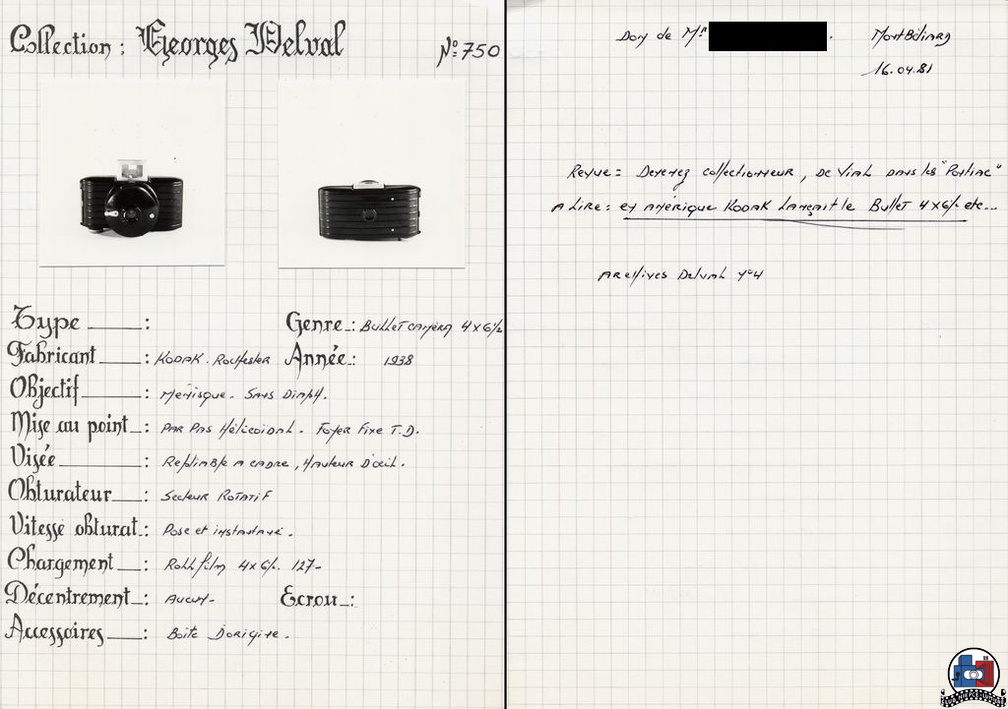 Collection : Georges Delval
N° 750
Type : Genre : Bullet caméra 4x6½
Fabricant : KODAK. Rochester Année : 1938
Objectif : Ménisque. Sans Diaph.
Mise au point : Par Pas Hélicoïdal. Foyer Fixe T.D.
Visée : Repliable A cadre, Hauteur D'œil.
Obturateur : Secteur Rotatif
Vitesse obturat. : Pose et instantané.
Chargement : Roll film 4x6½. 127-
Décentrement : Aucun- Ecrou :
Accessoires : Boite D'origine.
Don de Mr . Montbéliard
16.04.81
Revue = Devenez collectionneur, De Vial dans les "Pontiac"
A Lire : en Amérique KODAK Lançait le Bullet 4x6½ etc...
Archives Delval n°4